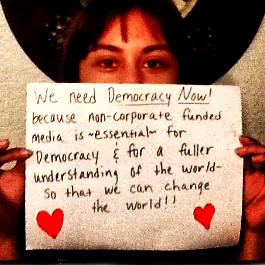 We need Democracy Now!
because non-corporate funded
media is ~essential~ for
Democracy & for a fuller
understanding of the world-
so that we can change
the world!!